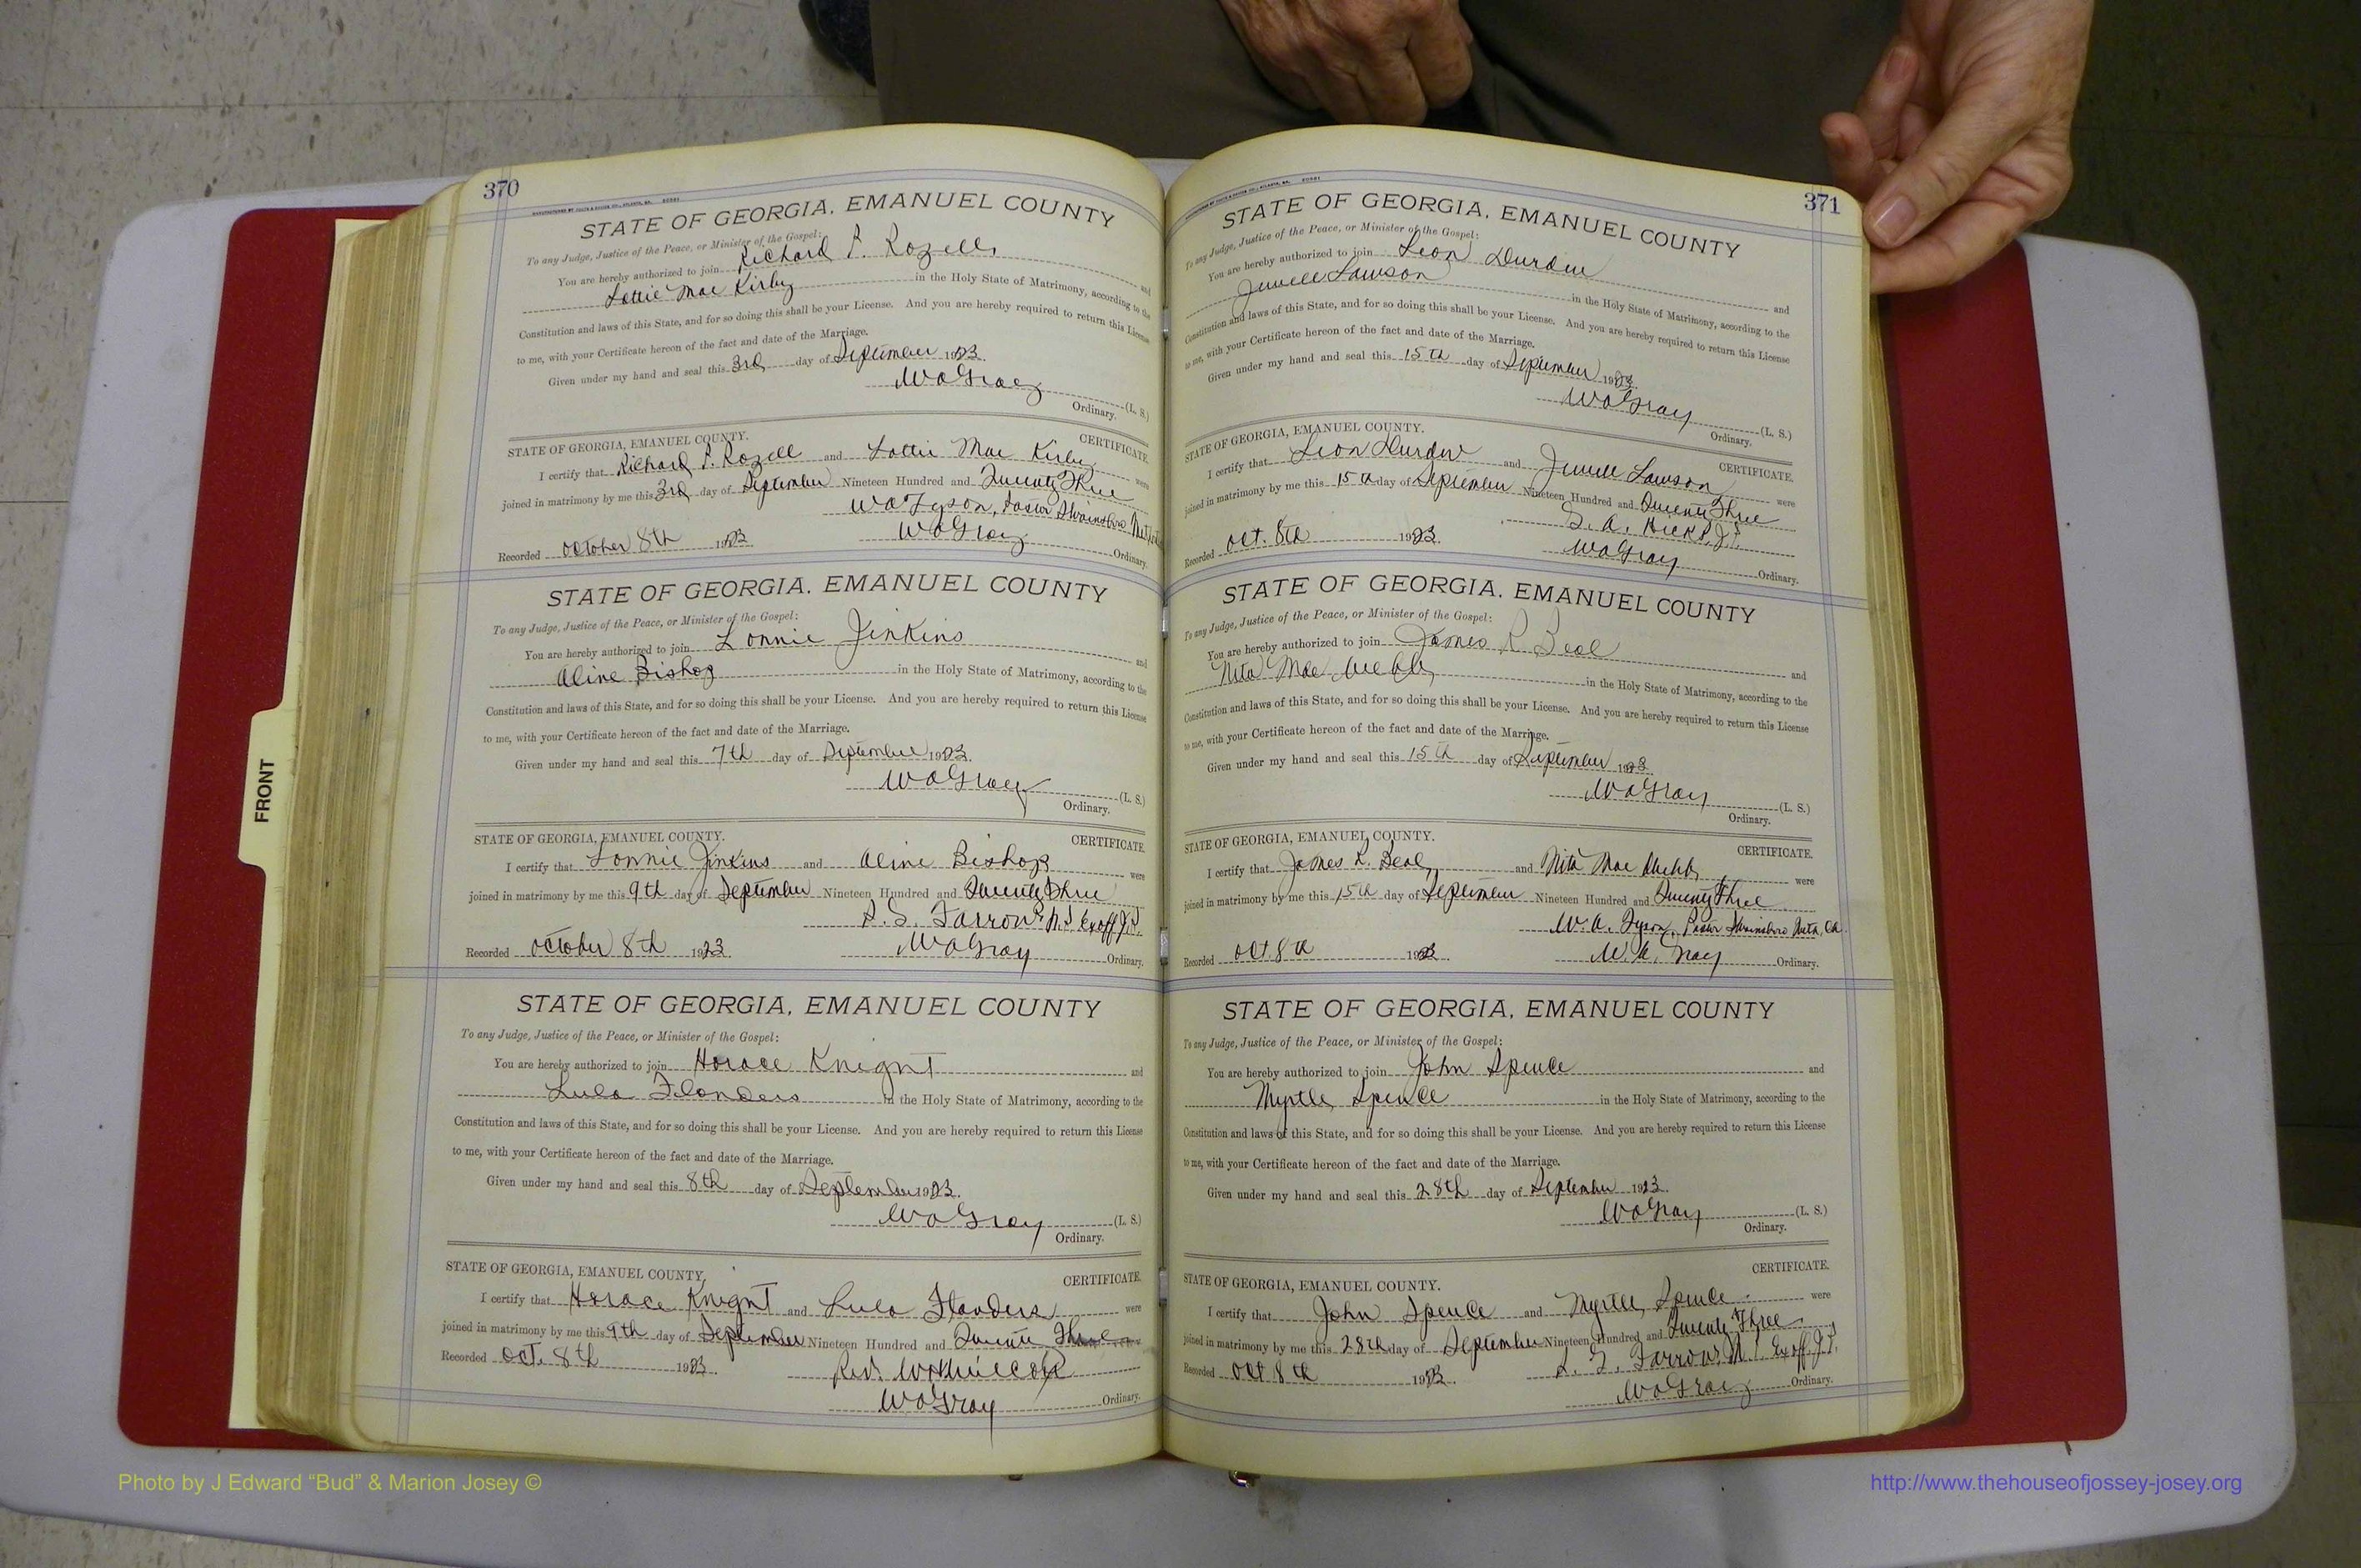 370
STATE OF GEORGIA, EMANUEL COUNTY
To any Judge, Justice of the Peace, or Minister of the Gospel:
You are hereby authorized to join Richard P. Rozell and
Lottie Mae Kirby in the Holy State of Matrimony, according to the
Constitution and laws of this State, and for so doing this shall be your License. And you are hereby required to return this License
to me, with your Certificate hereon of the fact and date of the Marriage.
Given under my hand and seal this 3rd day of September 1923.
WaGray (L. S.)
Ordinary.
STATE OF GEORGIA, EMANUEL COUNTY. CERTIFICATE
I certify that Richard P. Rozell and Lottie Mae Kirby were
joined in matrimony by me this 3rd day of September Nineteen Hundred and Twenty Three
Wa Tyson, Pastor Swainsboro
Recorded October 8th 1923. WaGray Ordinary.
STATE OF GEORGIA, EMANUEL COUNTY
To any Judge, Justice of the Peace, or Minister of the Gospel:
You are hereby authorized to join Lonnie Jinkins and
Aline Bishop in the Holy State of Matrimony, according to the
Constitution and laws of this State, and for so doing this shall be your License. And you are hereby required to return this License
to me, with your Certificate hereon of the fact and date of the Marriage.
Given under my hand and seal this 7th day of September 1923.
WaGray (L. S.)
Ordinary.
STATE OF GEORGIA, EMANUEL COUNTY. CERTIFICATE
I certify that Lonnie Jinkins and Aline Bishop were
joined in matrimony by me this 9th day of September Nineteen Hundred and Twenty Three
Farrow Exoff J.P.
Recorded October 8th 1923. WaGray Ordinary.
STATE OF GEORGIA, EMANUEL COUNTY
To any Judge, Justice of the Peace, or Minister of the Gospel:
You are hereby authorized to join Horace Knignt and
Lula Flanders in the Holy State of Matrimony, according to the
Constitution and laws of this State, and for so doing this shall be your License. And you are hereby required to return this License
to me, with your Certificate hereon of the fact and date of the Marriage.
Given under my hand and seal this 8th day of September 1923.
WaGray (L. S.)
Ordinary.
STATE OF GEORGIA, EMANUEL COUNTY, CERTIFICATE.
I certify that Horace Knignt and Lula Flanders were
joined in matrimony by me this 9th day of September Nineteen Hundred and Three
Recorded Oct. 8th 1923. Rev.
WaGray Ordinary.
371
STATE OF GEORGIA, EMANUEL COUNTY
To any Judge, Justice of the Peace, or Minister of the Gospel:
You are hereby authorized to join Leon Durden and
Jewell Lawson in the Holy State of Matrimony, according to the
Constitution and laws of this State, and for so doing this shall be your License. And you are hereby required to return this License
to me, with your Certificate hereon of the fact and date of the Marriage.
Given under my hand and seal this 15th day of September 1923.
WaGray (L. S.)
Ordinary.
STATE OF GEORGIA, EMANUEL COUNTY. CERTIFICATE.
I certify that Leon Durden and Jewell Lawson were
joined in matrimony by me this 15th day of September Nineteen Hundred and Twenty Three
Hicks, J.P.
Recorded Oct. 8th 1923. WaGray Ordinary.
STATE OF GEORGIA, EMANUEL COUNTY
To any Judge, Justice of the Peace, or Minister of the Gospel:
You are hereby authorized to join James R Beal and
Nita Mae Webb in the Holy State of Matrimony, according to the
Constitution and laws of this State, and for so doing this shall be your License. And you are hereby required to return this License
to me, with your Certificate hereon of the fact and date of the Marriage.
Given under my hand and seal this 15th day of September 1923.
WaGray (L. S.)
Ordinary.
STATE OF GEORGIA, EMANUEL COUNTY. CERTIFICATE.
I certify that James R. Beal and Nita Mae Webb were
joined in matrimony by me this 15th day of September Nineteen Hundred and Twenty Three
W. a. Tyson, Pastor Swainsboro Meth. Ch.
Recorded Oct. 8th 1923. W. a. Gray Ordinary.
STATE OF GEORGIA, EMANUEL COUNTY
To any Judge, Justice of the Peace, or Minister of the Gospel:
You are hereby authorized to join John Spence and
Myrtle Spence in the Holy State of Matrimony, according to the
Constitution and laws of this State, and for so doing this shall be your License. And you are hereby required to return this License
to me, with your Certificate hereon of the fact and date of the Marriage.
Given under my hand and seal this 28th day of September 1923.
WaGray (L. S.)
Ordinary.
STATE OF GEORGIA, EMANUEL COUNTY. CERTIFICATE.
I certify that John Spence and Myrtle Spence were
joined in matrimony by me this 28th day of September Nineteen Hundred and Twenty Three
Recorded Oct 8th 1923. Farrow Exoff. J.P.
WaGray Ordinary.
FRONT
Photo by J Edward “Bud” & Marion Josey ©
http://www.thehouseofjossey-josey.org